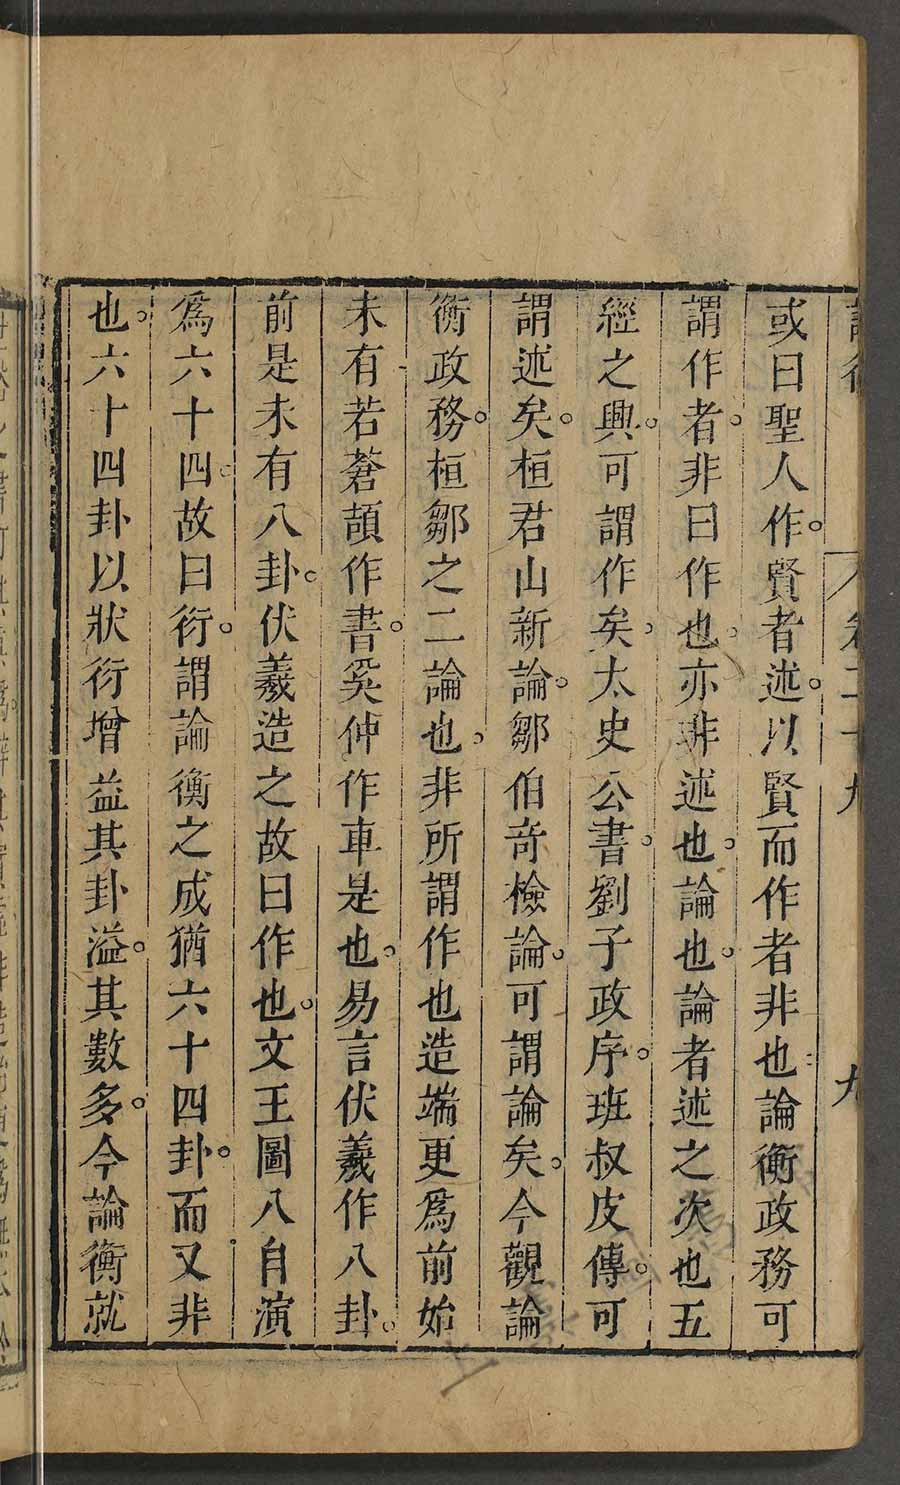 論衡 卷二十九 九
或曰聖人作。賢者述。以賢而作者非也。論衡政務可
謂作者。非曰作也。亦非述也。論也。論者述之次也五
經之興。可謂作矣。太史公書。劉子政序。班叔皮傳。可
謂述矣。桓君山新論。鄒伯奇檢論。可謂論矣。今觀論
衡政務。桓鄒之二論也。非所謂作也造端更爲前始
未有若蒼頡作書。奚仲作車是也。易言伏羲作八卦。
前是未有八卦。伏羲造之故曰作也。文王圖八自演
爲六十四。故曰衍。謂論衡之成猶六十四卦。而又非
也。六十四卦以狀衍增益其卦溢。其數多。今論衡就